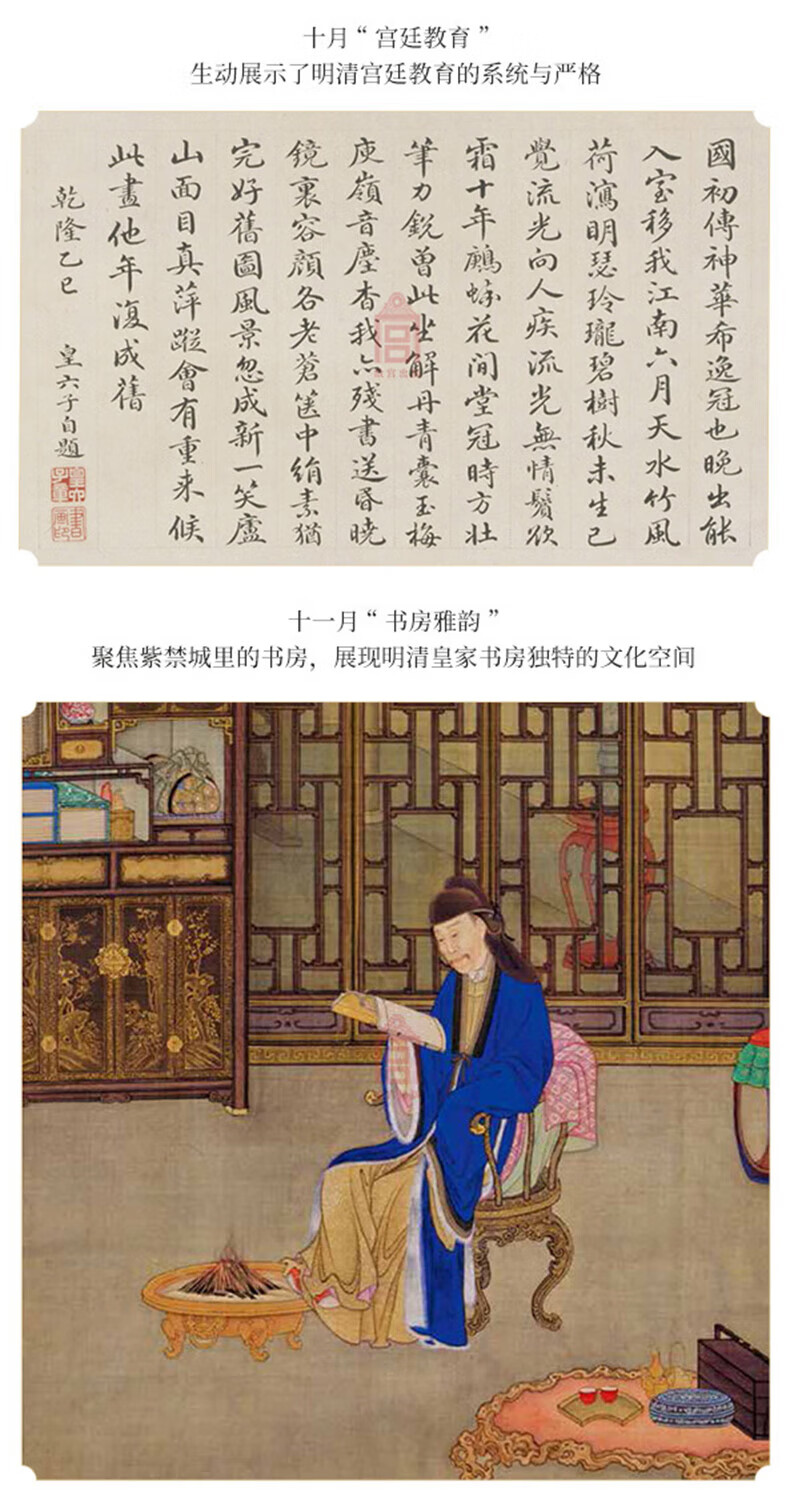 十月“宫廷教育”
生动展示了明清宫廷教育的系统与严格
國初傳神華希逸冠也晚出能
入室移我江南六月天水竹風
荷瀉明瑟玲瓏碧樹秋未生已
覺流光向人疾流光無情鬢欲
霜十年鷓鴣花間堂冠時方壯
筆力銳曾此坐解丹青囊玉梅
庾嶺音塵杳我亦殘書送昏曉
鏡裏容顏各老蒼篋中絹素猶
完好舊圖風景忽成新一笑廬
山面目真萍蹤會有重来候
此畫他年復成舊
乾隆乙巳 皇六子自題
十一月“书房雅韵”
聚焦紫禁城里的书房，展现明清皇家书房独特的文化空间